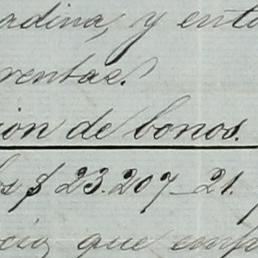 adina, y ent
rentas.
ion de bonos.
os $ 23.207_21.
cio, que comp